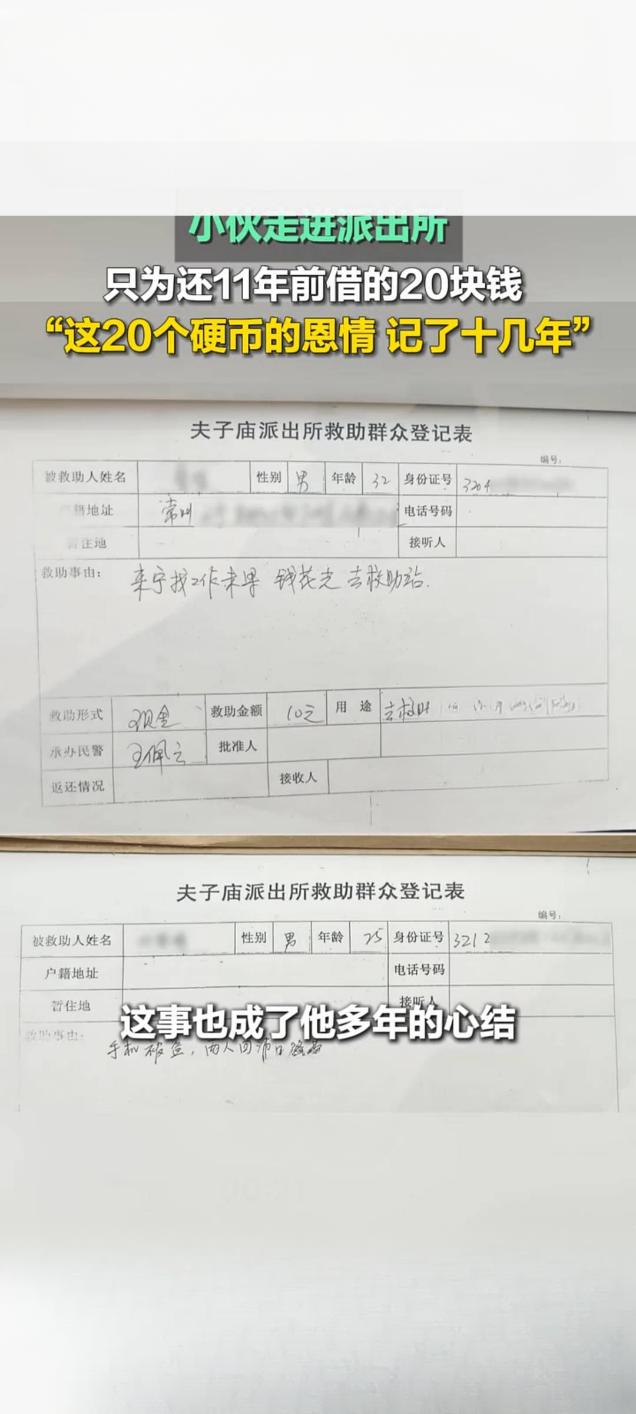 小伙走进派出所
只为还11年前借的20块钱
“这20个硬币的恩情 记了十几年”
夫子庙派出所救助群众登记表
编号:
被救助人姓名 性别 男 年龄 32 身份证号 3204
户籍地址 常州 电话号码
暂住地 接听人
救助事由: 来宁找工作未果 钱花光 去救助站.
救助形式 现金 救助金额 10元 用途 去救助
承办民警 王佩立 批准人
返还情况 接收人
夫子庙派出所救助群众登记表
编号:
被救助人姓名 性别 男 年龄 25 身份证号 3212
户籍地址 电话号码
暂住地 接听人
这事也成了他多年的心结
救助事由: 手机被盗, 两人回